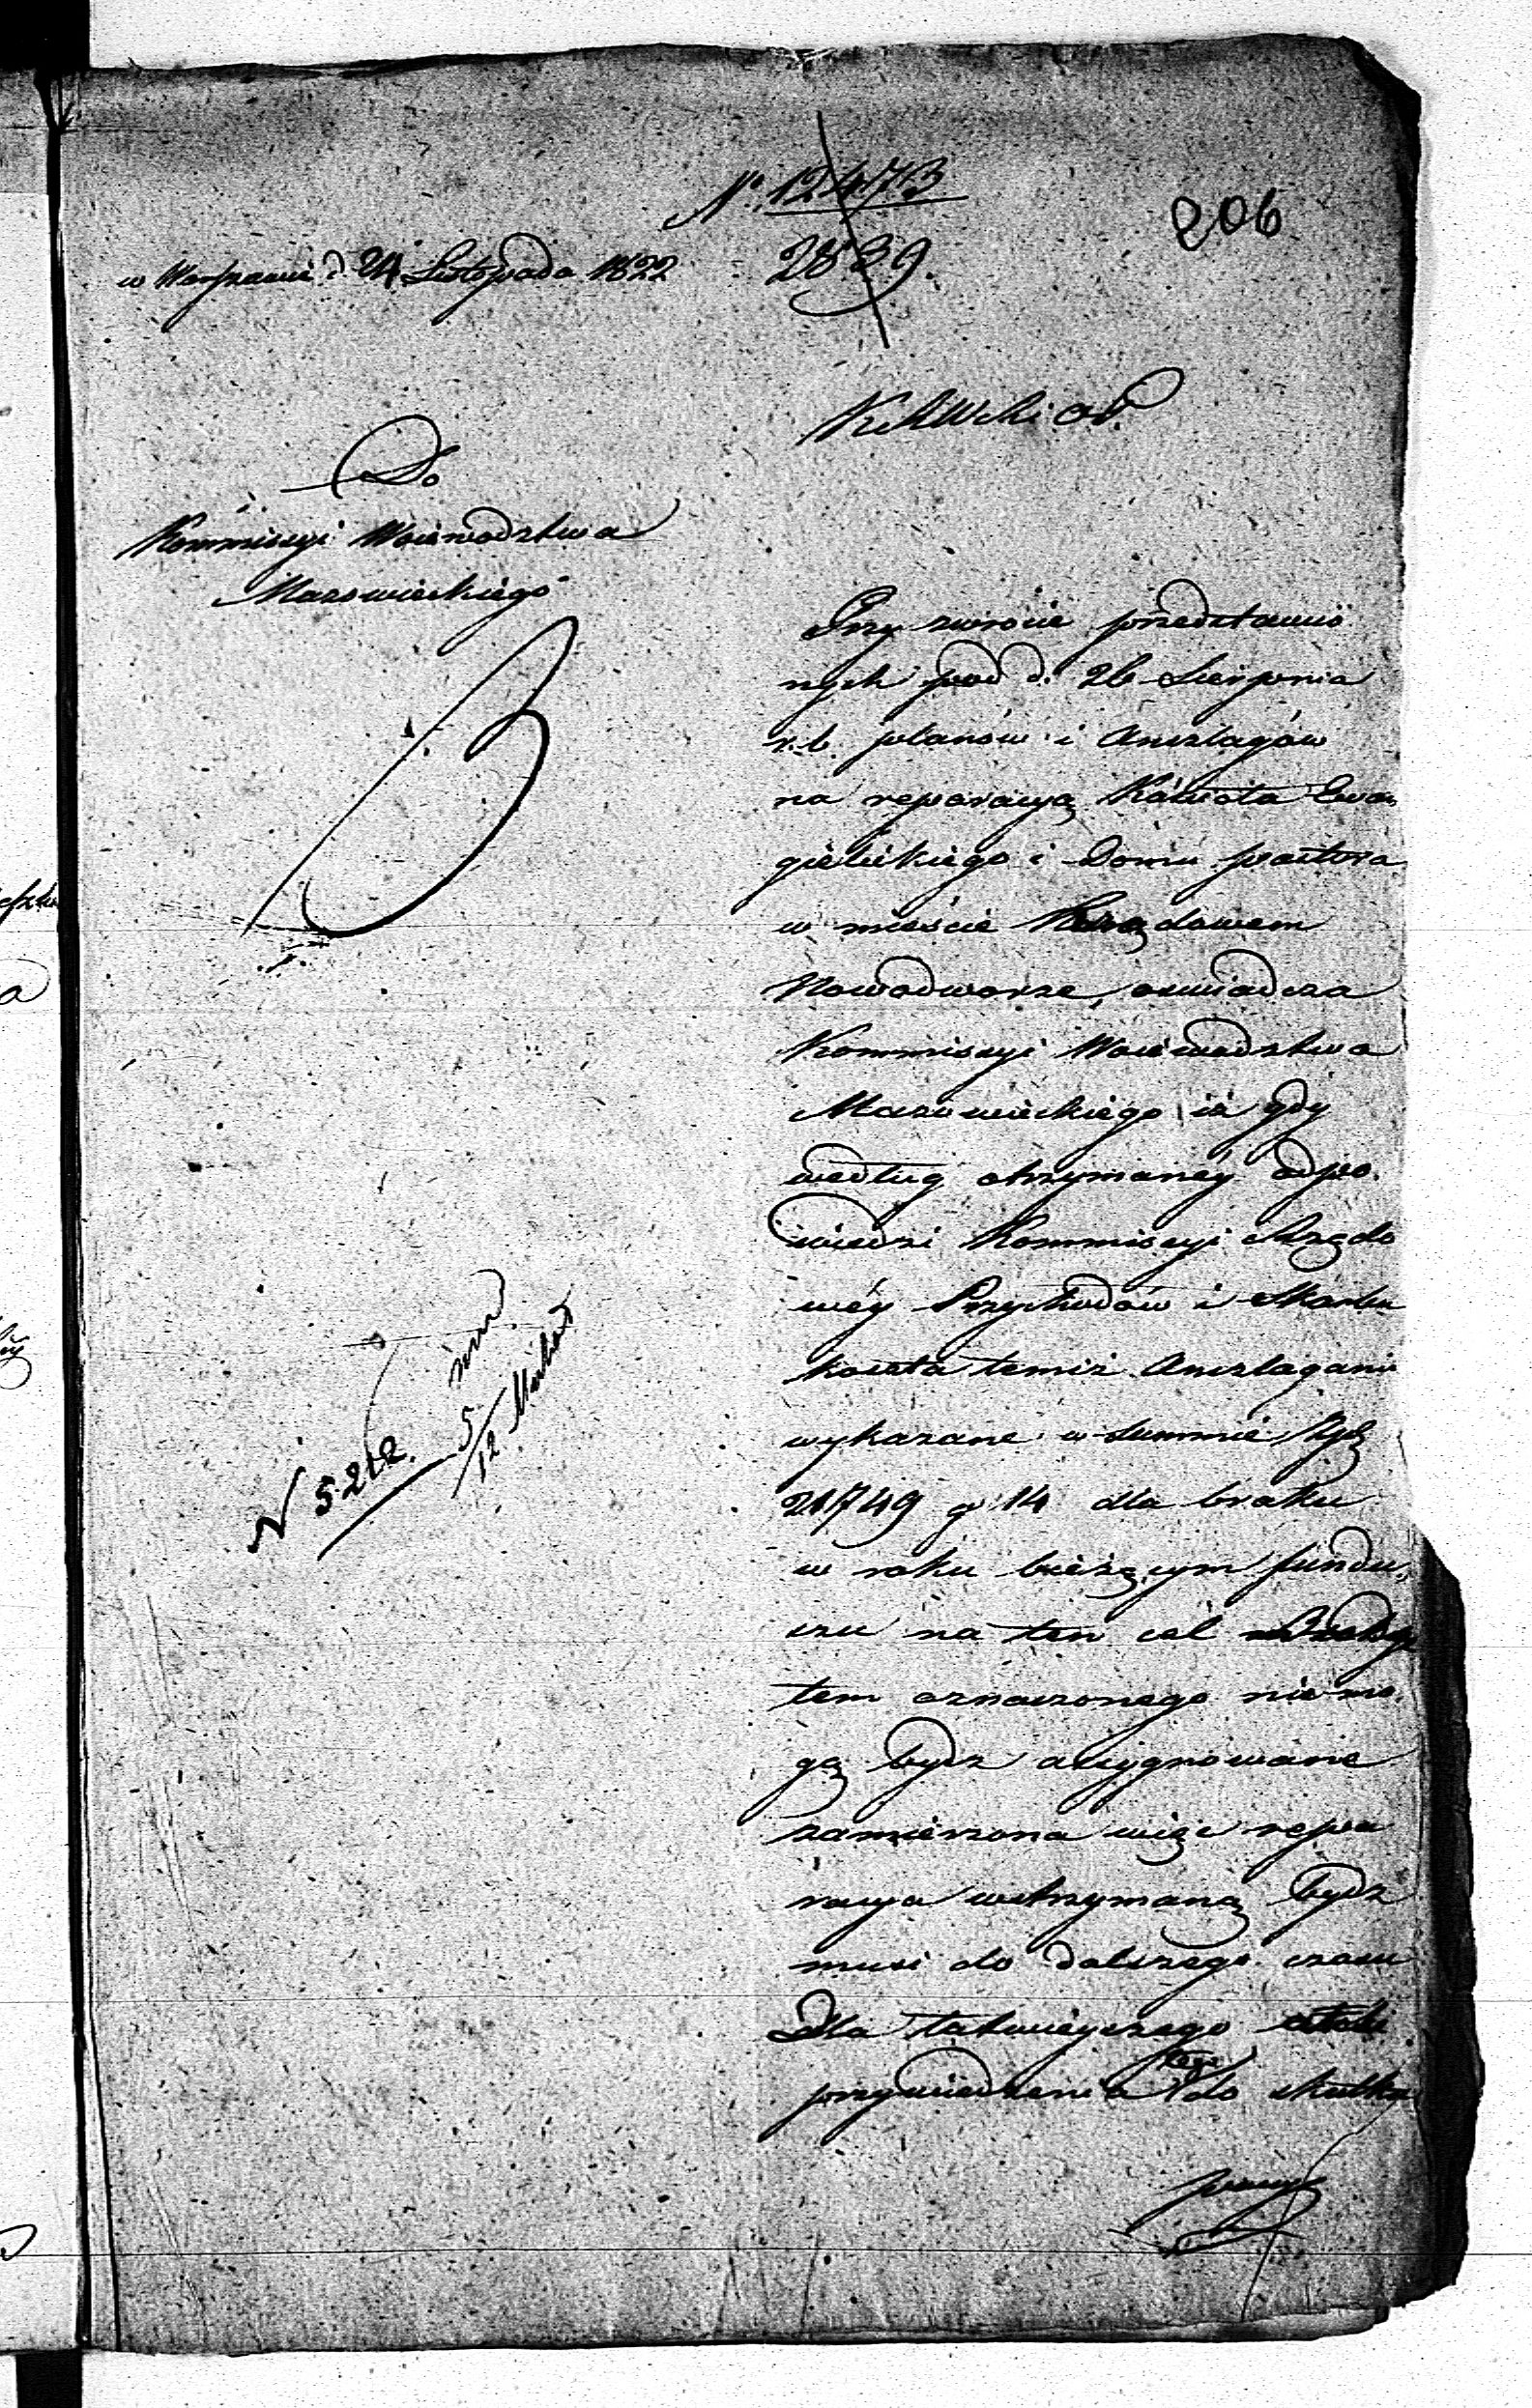 N° 12473
2839.
206
w Warszawie d 24 Listopada 1822
Do
Kommissyi Woiewodztwa
Mazowieckiego
Przy zwrocie przedstawio
nych pod d. 26 Sierpnia
r. b. planów i Anszlagów
na reparacyą Kościoła Ewan
gielickiego i Domu pastora
w mieście Rządowem
Nowodworze, oswiadcza
Kommissyi Woiewodztwa
Mazowieckiego iż gdy
według otrzymanéy odpo
wiedzi Kommissyi Rządo
wéy Przychodów i Skarbu
koszta temiż Anszlagami
wykazane w Summie
21749 g 14 dla braku
w roku bieżącym fundu
szu na ten cel
tem oznaczonego nie mo
gą bydz assygnowane
zamierzona więc repa
racya wstrzymaną bydz
musi do dalszego czasu
Dla łatwieyszego
przywiedzenia tego do skutku
N 5212.
5/12